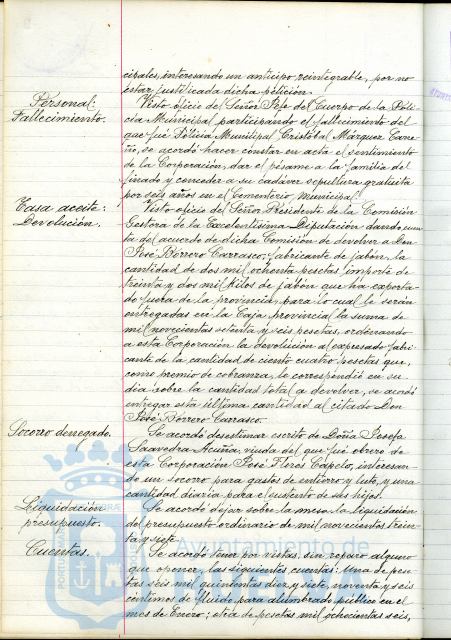 cipales, interesando un anticipo reintegrable, por no
estar justificada dicha petición.
Personal:
Fallecimiento.
Visto oficio del Señor Jefe del Cuerpo de la Poli-
cia Municipal participando el fallecimiento del
que fué Policia Municipal Cristóbal Márquez
se acordó hacer constar en acta el sentimiento
de la Corporación, dar el pésame a la familia del
finado y conceder a su cadáver sepultura gratuita
por seis años en el Cementerio Municipal.
Tasa aceite:
Devolución.
Visto oficio del Señor Presidente de la Comisión
Gestora de la Excelentisima Diputación dando cuen-
ta del acuerdo de dicha Comisión de devolver a Don
José Borrero Carrasco, fabricante de jabón, la
cantidad de dos mil ochenta pesetas importe de
treinta y dos mil kilos de jabón que ha exporta-
do fuera de la provincia, para lo cual le serán
entregadas en la Caja provincial la suma de
mil novecientas setenta y seis pesetas, ordenando
a esta Corporación la devolución al expresado fabri-
cante de la cantidad de ciento cuatro pesetas que,
como premio de cobranza, le correspondió en su
dia sobre la cantidad total a devolver, se acordó
entregar esta última cantidad al citado Don
José Borrero Carrasco.
Socorro denegado.
Se acordó desestimar escrito de Doña Josefa
Saavedra Acuña, viuda del que fué obrero de
esta Corporación José Flores Capelo, interesan-
do un socorro para gastos de entierro y luto, y una
cantidad diaria para el sustento de sus hijos.
Liquidación
presupuesto.
Se acordó dejar sobre la mesa la liquidación
del presupuesto ordinario de mil novecientos trein-
ta y siete.
Cuentas.
Se acordó tener por vistas, sin reparo alguno
que oponer, las siguientes cuentas: Una de pese-
tas seis mil quinientas diez y siete, noventa y seis
céntimos de fluido para alumbrado público en el
mes de Enero; otra de pesetas mil ochocientas seis,
Ayuntamiento de